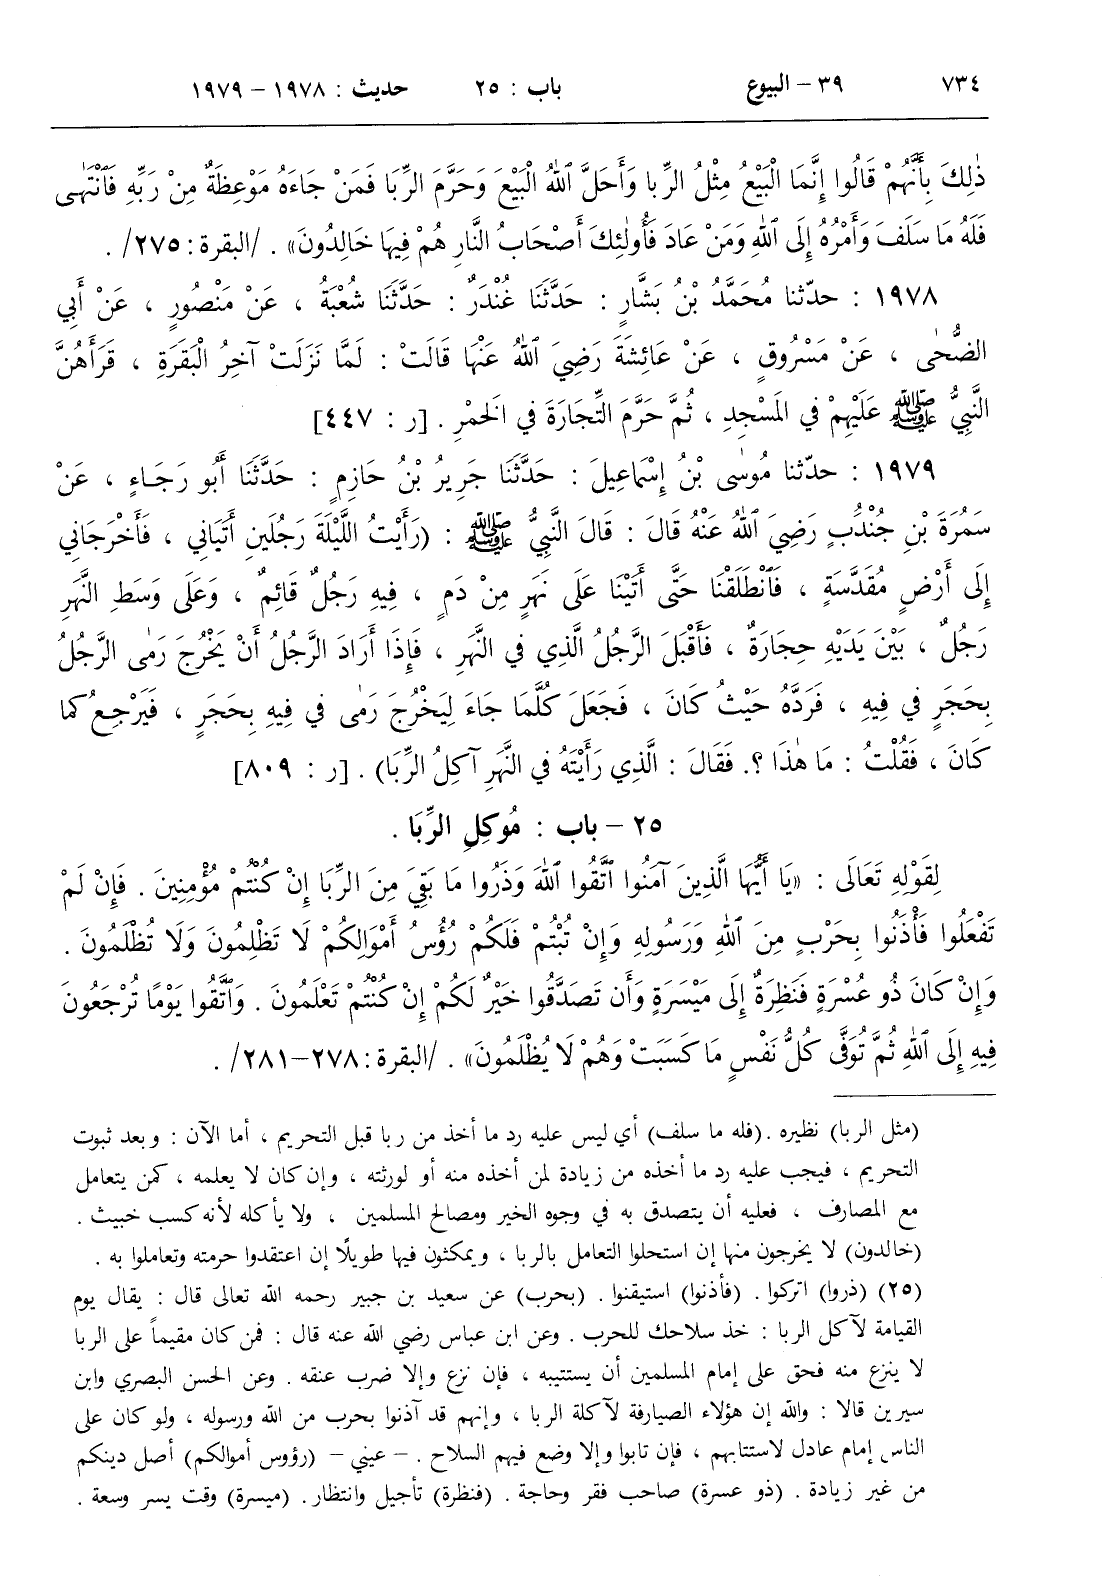 ٧٣٤ ٣٩ – البيوع باب : ٢٥ حديث : ١٩٧٨ – ١٩٧٩
ذٰلِكَ بِأَنَّهُمْ قَالُوا إِنَّمَا الْبَيْعُ مِثْلُ الرِّبا وَأَحَلَّ ٱللهُ الْبَيْعَ وَحَرَّمَ الرِّبَا فَمَنْ جَاءَهُ مَوْعِظَةٌ مِنْ رَبِّهِ فَٱنْتَهٰى
فَلَهُ مَا سَلَفَ وَأَمْرُهُ إِلَى ٱللهِ وَمَنْ عَادَ فَأُولٰئِكَ أَصْحَابُ النَّارِ هُمْ فِيهَا خَالِدُونَ» . /البقرة : ٢٧٥/ .
١٩٧٨ : حدّثنا مُحَمَّدُ بْنُ بَشَّارٍ : حَدَّثَنَا غُنْدَرٌ : حَدَّثَنَا شُعْبَةُ ، عَنْ مَنْصُورٍ ، عَنْ أَبِي
الضُّحٰى ، عَنْ مَسْرُوقٍ ، عَنْ عَائِشَةَ رَضِيَ ٱللهُ عَنْهَا قَالَتْ : لَمَّا نَزَلَتْ آخِرُ الْبَقَرَةِ ، قَرَأَهُنَّ
النَّبِيُّ ﷺ عَلَيْهِمْ فِي المَسْجِدِ ، ثُمَّ حَرَّمَ التِّجَارَةَ فِي الخَمْرِ . [ر : ٤٤٧]
١٩٧٩ : حدّثنا مُوسٰى بْنُ إِسْمَاعِيلَ : حَدَّثَنَا جَرِيرُ بْنُ حَازِمٍ : حَدَّثَنَا أَبُو رَجَاءٍ ، عَنْ
سَمُرَةَ بْنِ جُنْدُبٍ رَضِيَ ٱللهُ عَنْهُ قَالَ : قَالَ النَّبِيُّ ﷺ : (رَأَيْتُ اللَّيْلَةَ رَجُلَينِ أَتَيَانِي ، فَأَخْرَجَانِي
إِلَى أَرْضٍ مُقَدَّسَةٍ ، فَٱنْطَلَقْنَا حَتَّى أَتَيْنَا عَلَى نَهَرٍ مِنْ دَمٍ ، فِيهِ رَجُلٌ قَائِمٌ ، وَعَلَى وَسَطِ النَّهَرِ
رَجُلٌ ، بَيْنَ يَدَيْهِ حِجَارَةٌ ، فَأَقْبَلَ الرَّجُلُ الَّذِي فِي النَّهَرِ ، فَإِذَا أَرَادَ الرَّجُلُ أَنْ يَخْرُجَ رَمٰى الرَّجُلُ
بِحَجَرٍ فِي فِيهِ ، فَرَدَّهُ حَيْثُ كَانَ ، فَجَعَلَ كُلَّمَا جَاءَ لِيَخْرُجَ رَمٰى فِي فِيهِ بِحَجَرٍ ، فَيَرْجِعُ كما
كَانَ ، فَقُلْتُ : مَا هٰذَا ؟. فَقَالَ : الَّذِي رَأَيْتَهُ فِي النَّهَرِ آكِلُ الرِّبَا) . [ر : ٨٠٩]
٢٥ – باب : مُوكِلِ الرِّبَا .
لِقَوْلِهِ تَعَالَى : «يَا أَيُّهَا الَّذِينَ آمَنُوا ٱتَّقُوا ٱللهَ وَذَرُوا مَا بَقِيَ مِنَ الرِّبَا إِنْ كُنْتُمْ مُؤْمِنِينَ . فَإِنْ لَمْ
تَفْعَلُوا فَأْذَنُوا بِحَرْبٍ مِنَ ٱللهِ وَرَسُولِهِ وَإِنْ تُبْتُمْ فَلَكُمْ رُؤُسُ أَمْوَالِكُمْ لَا تَظْلِمُونَ وَلَا تُظْلَمُونَ .
وَإِنْ كَانَ ذُو عُسْرَةٍ فَنَظِرَةٌ إِلَى مَيْسَرَةٍ وَأَن تَصَدَّقُوا خَيْرٌ لَكُمْ إِنْ كُنْتُمْ تَعْلَمُونَ . وَٱتَّقُوا يَوْمًا تُرْجَعُونَ
فِيهِ إِلَى ٱللهِ ثُمَّ تُوَفَّى كُلُّ نَفْسٍ مَا كَسَبَتْ وَهُمْ لَا يُظْلَمُونَ» . /البقرة : ٢٧٨–٢٨١/ .
(مثل الربا) نظيره . (فله ما سلف) أي ليس عليه رد ما أخذ من ربا قبل التحريم ، أما الآن : وبعد ثبوت
التحريم ، فيجب عليه رد ما أخذه من زيادة لمن أخذه منه أو لورثته ، وإن كان لا يعلمه ، كمن يتعامل
مع المصارف ، فعليه أن يتصدق به في وجوه الخير ومصالح المسلمين ، ولا يأكله لأنه كسب خبيث .
(خالدون) لا يخرجون منها إن استحلوا التعامل بالربا ، ويمكثون فيها طويلًا إن اعتقدوا حرمته وتعاملوا به .
(٢٥) (ذروا) اتركوا . (فأذنوا) استيقنوا . (بحرب) عن سعيد بن جبير رحمه الله تعالى قال : يقال يوم
القيامة لآكل الربا : خذ سلاحك للحرب . وعن ابن عباس رضي الله عنه قال : فمن كان مقيماً على الربا
لا ينزع منه فحق على إمام المسلمين أن يستتيبه ، فإن نزع وإلا ضرب عنقه . وعن الحسن البصري وابن
سيرين قالا : والله إن هؤلاء الصيارفة لآكلة الربا ، وإنهم قد آذنوا بحرب من الله ورسوله ، ولو كان على
الناس إمام عادل لاستتابهم ، فإن تابوا وإلا وضع فيهم السلاح . – عيني – (رؤوس أموالكم) أصل دينكم
من غير زيادة . (ذو عسرة) صاحب فقر وحاجة . (فنظرة) تأجيل وانتظار . (ميسرة) وقت يسر وسعة .